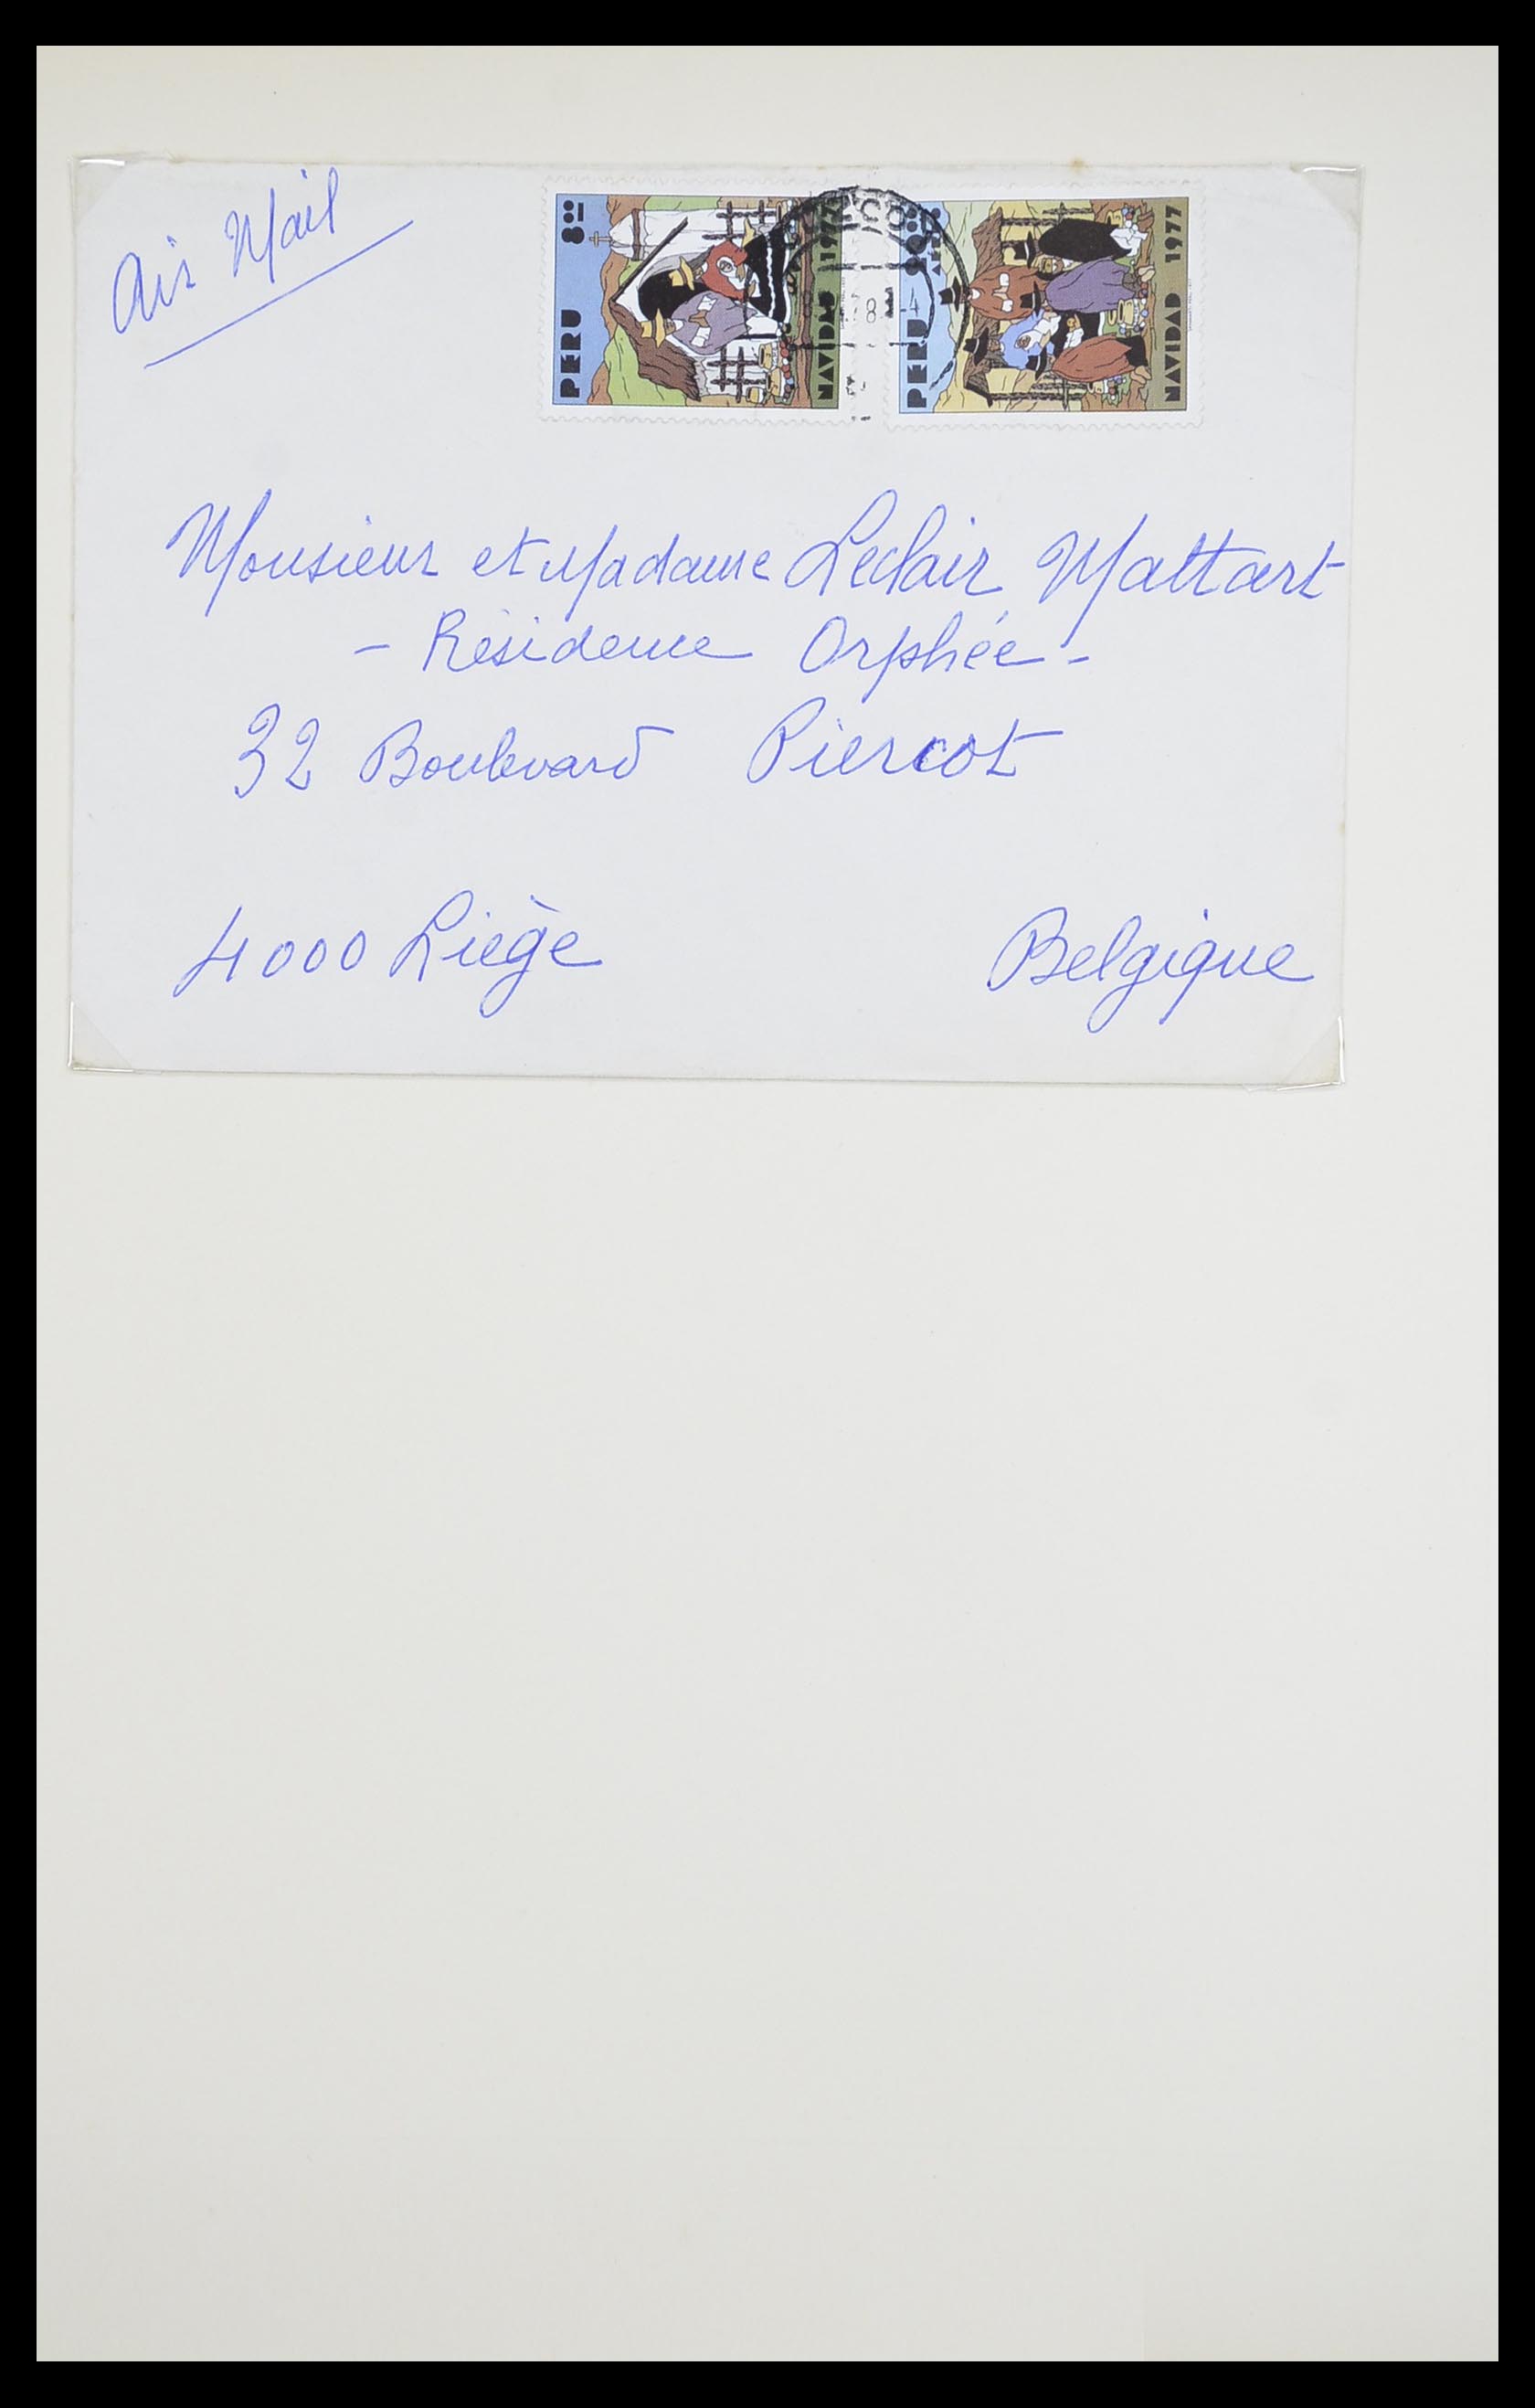 Air Mail
PERU 8.00
NAVIDAD 1977
PERU
NAVIDAD 1977
Monsieur et Madame Leclair Mattart
- Résidence Orphée -
32 Boulevard Piercot
4000 Liège Belgique